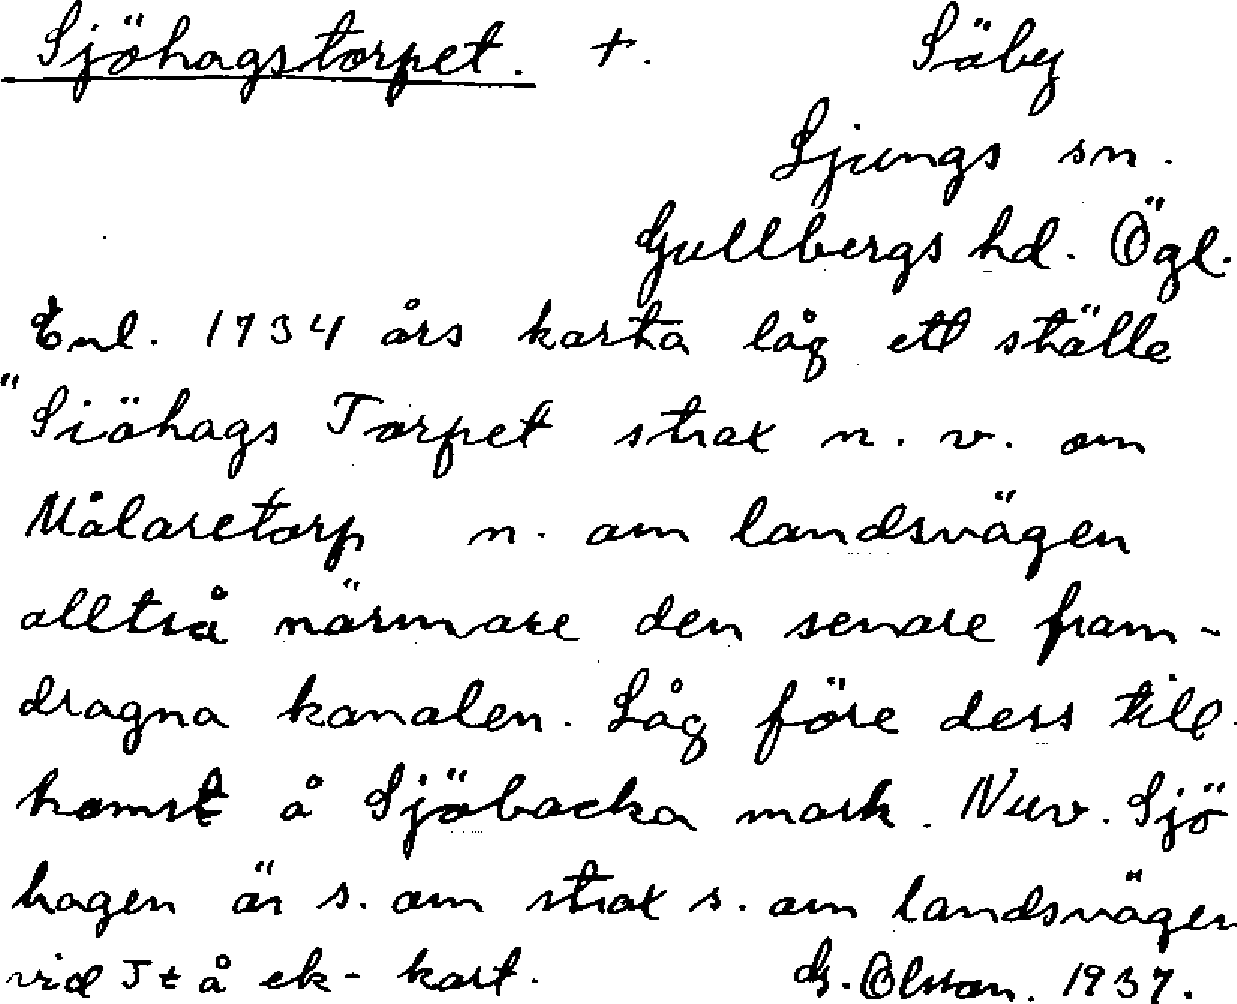 Sjöhagstorpet. +. Säby
Ljungs sn.
Gullbergs hd. Ögl.
Enl. 1734 års karta låg ett ställe
"Siöhags Torpet strax n. v. om
Målaretorp n. om landsvägen
alltså närmare den senare fram-
dragna kanalen. Låg före dess till
komst å Sjöbacka mark. Nuv. Sjö
hagen är s. om strax s. om landsvägen
vid J t å ek- kart. G. Olsson. 1937.